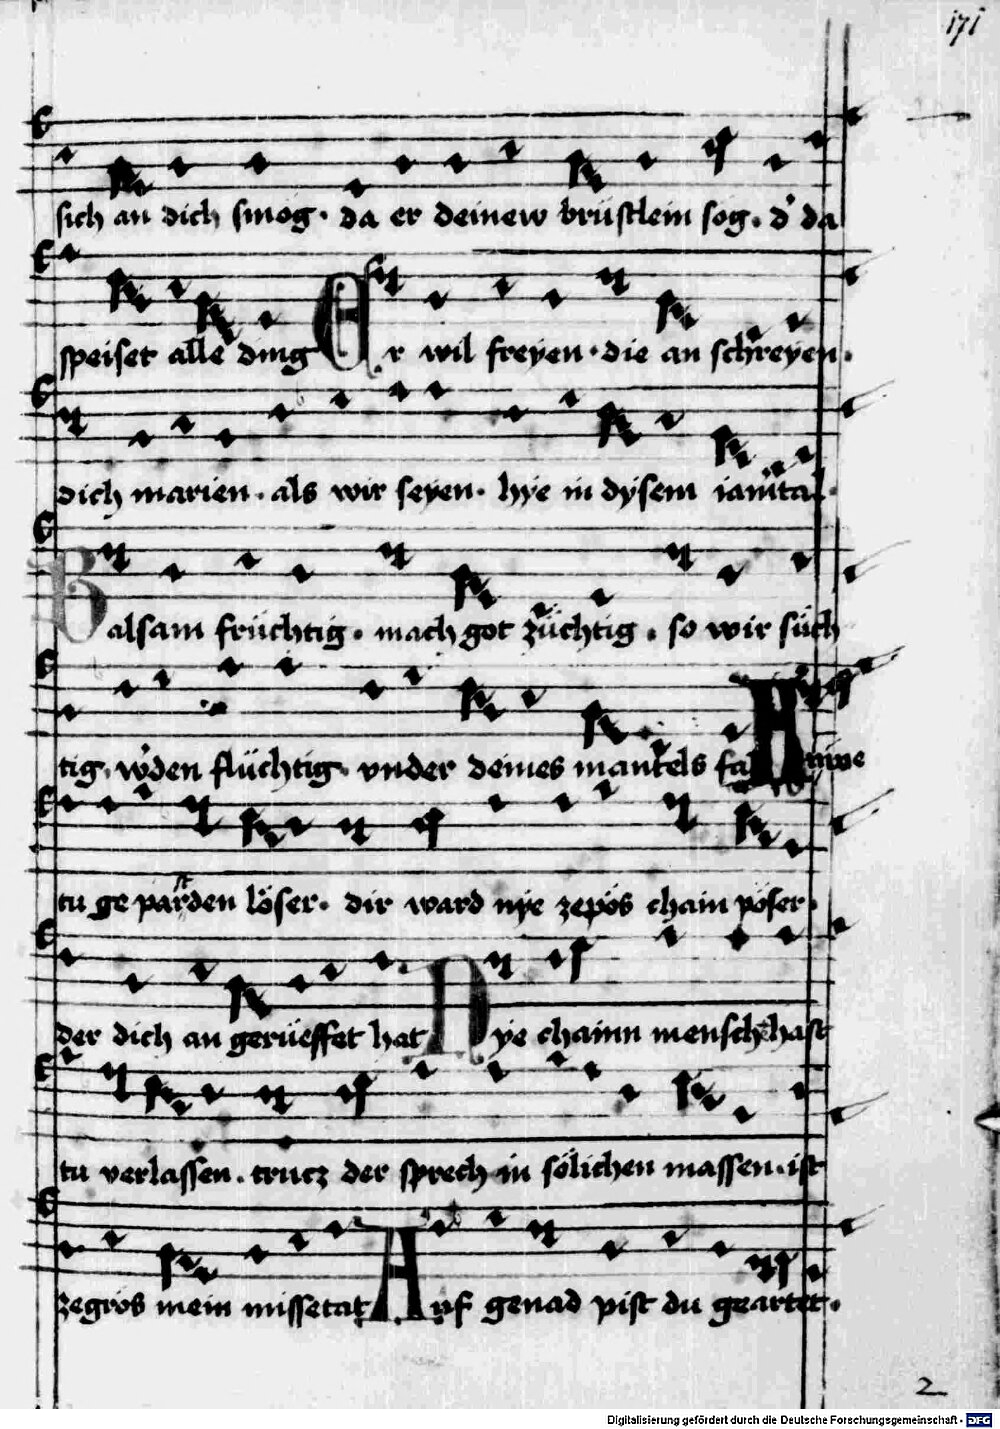 171
sich an dich smog · da er deinew brüstlein sog · d' da
speiset alle ding Er wil freyen · die an schreyen ·
dich marien · als wir seyen · hye in dysem iamital ·
Balsam früchtig · mach got züchtig · so wir süch
tig · w'den flüchtig · vnder deines mantels fal
tu ge parden löser · dir ward nye zepös chain pöser ·
der dich an gerüeffet hat Nye chainn mensch hast
tu verlassen · trucz der sprech in sölichen massen · ist
zegros mein missetat Auf genad pist du geartet ·
2
Digitalisierung gefördert durch die Deutsche Forschungsgemeinschaft - DFG